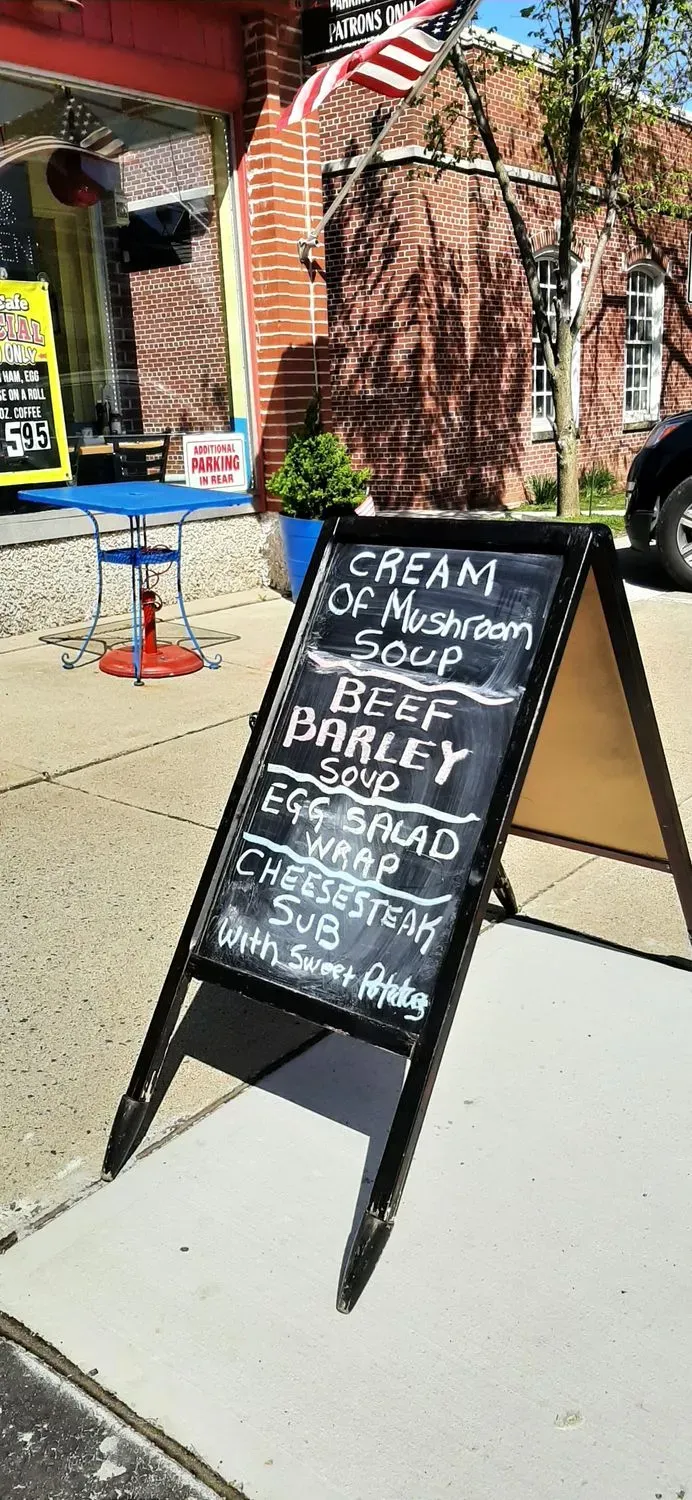 PATRONS ONLY
Cafe
ONLY
HAM, EGG
ON A ROLL
OZ. COFFEE
595
ADDITIONAL
PARKING
IN REAR
CREAM
OF Mushroom
SOUP
BEEF
BARLEY
SOUP
EGG SALAD
WRAP
CHEESESTEAK
SUB
With Sweet Potatoes